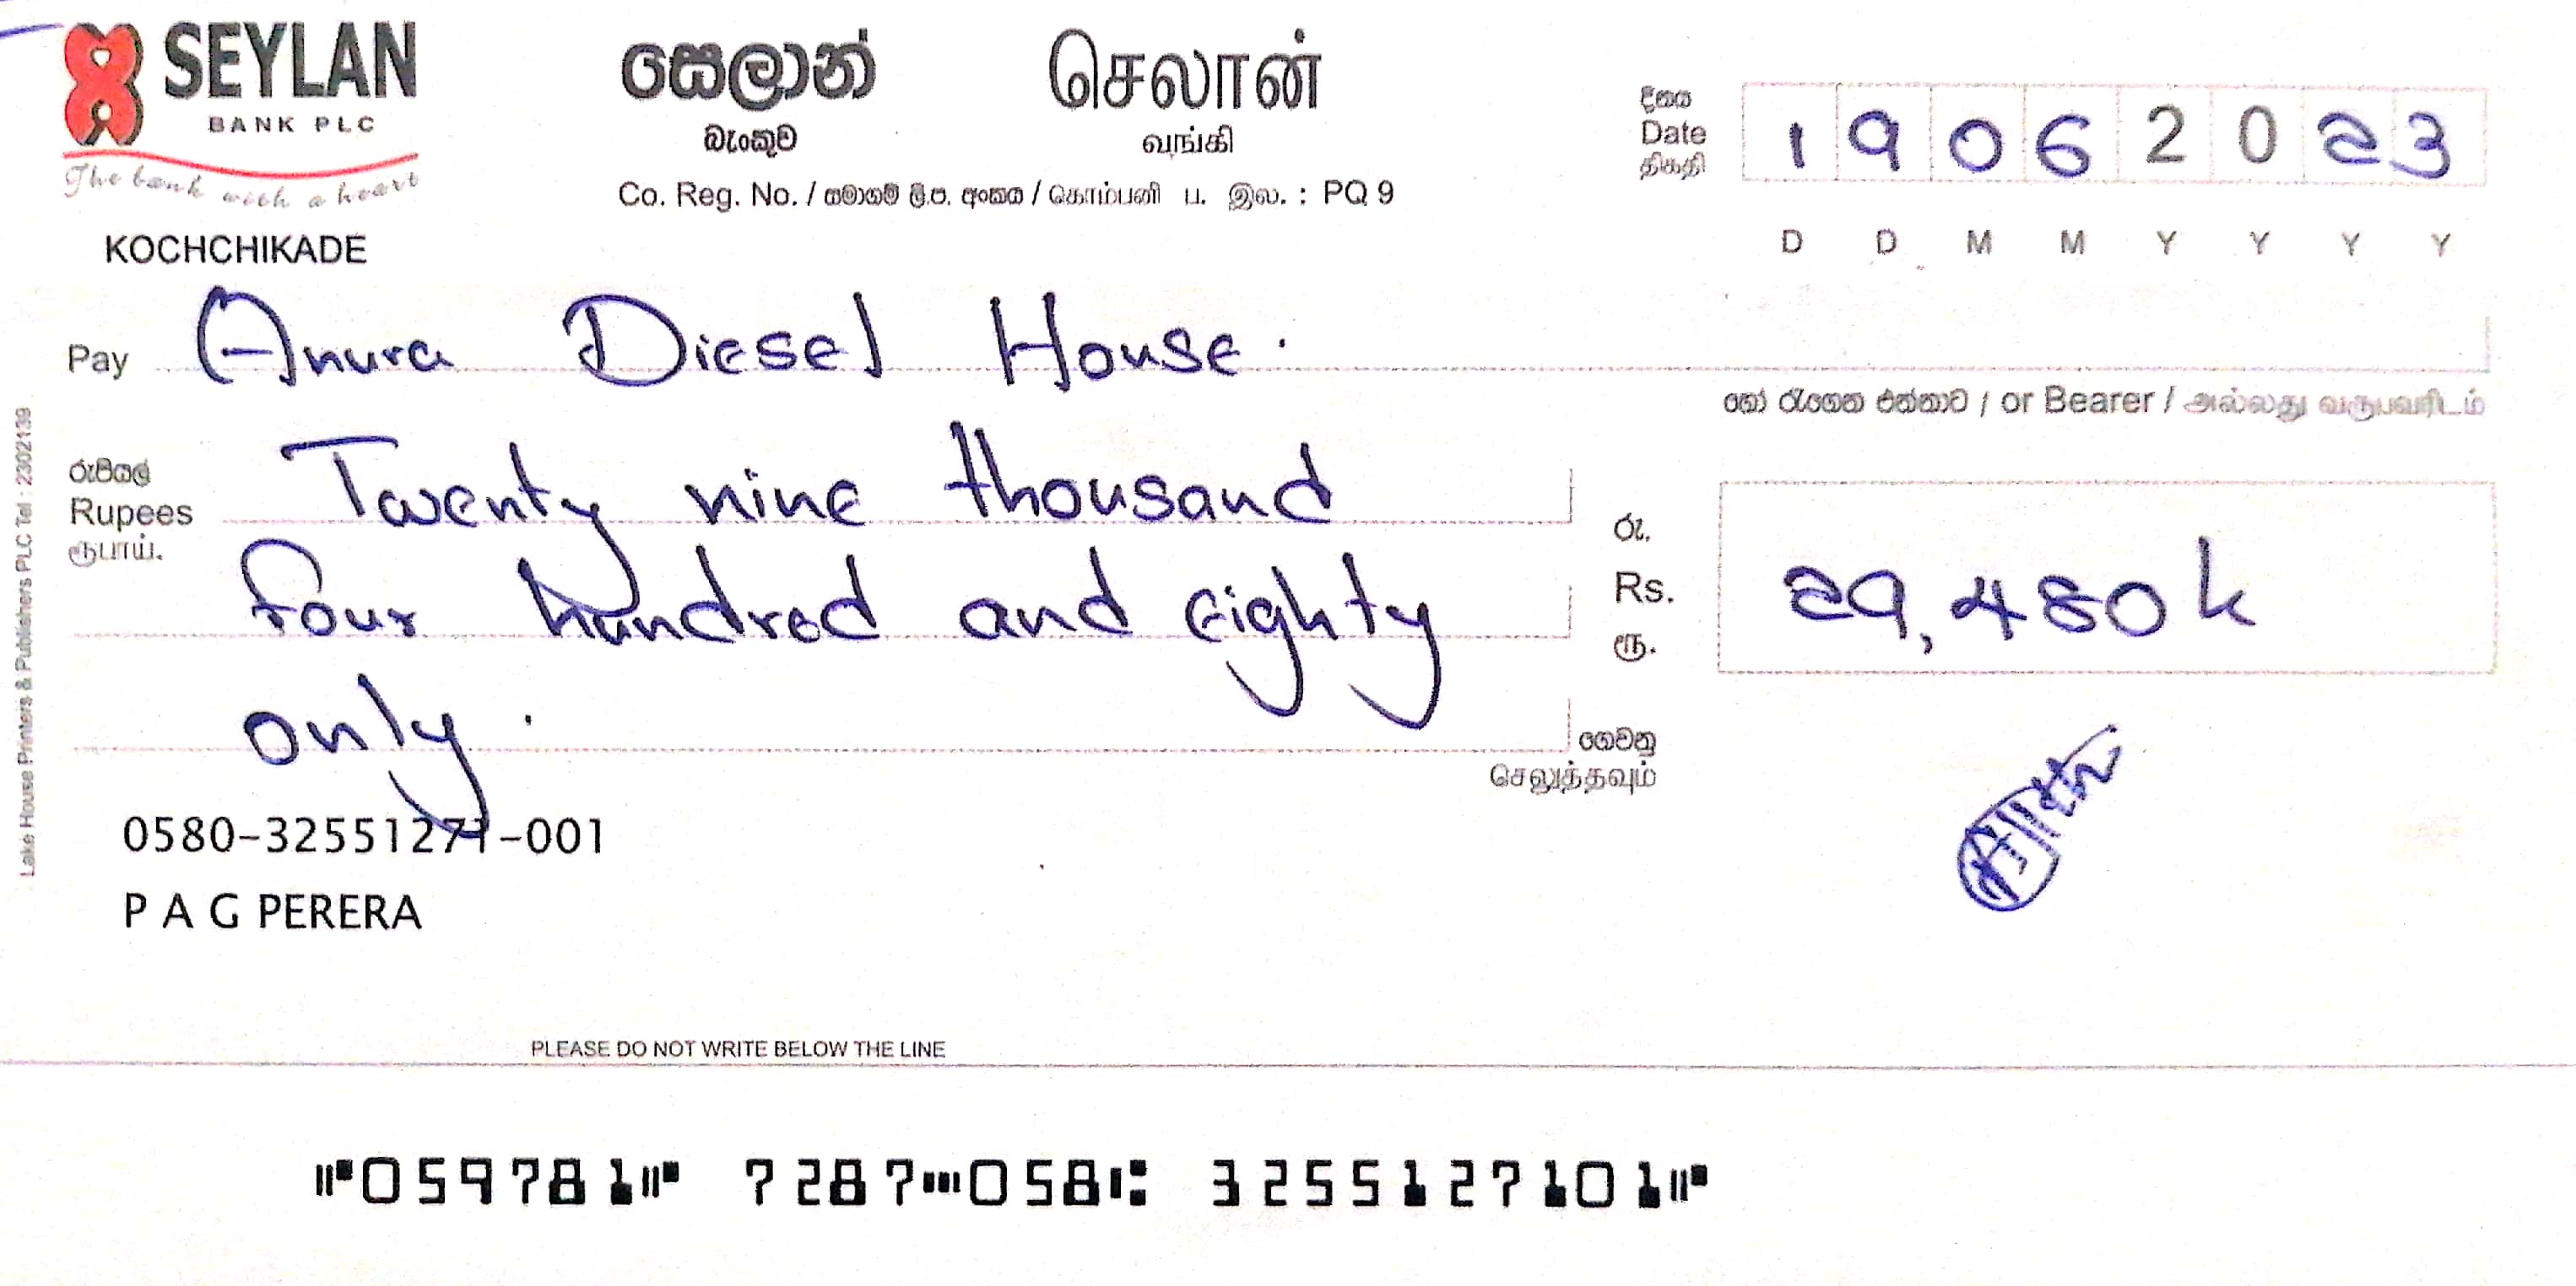 SEYLAN
BANK PLC
The bank with a heart
සෙලාන්
බැංකුව
செலான்
வங்கி
Co. Reg. No. / සමාගම් ලි.ප. අංකය / கொம்பனி ப. இல. : PQ 9
දිනය
Date
திகதி
1 9 0 6 2 0 2 3
D D M M Y Y Y Y
KOCHCHIKADE
Pay Anura Diesel House.
හෝ රැගෙන එන්නාට / or Bearer / அல்லது வருபவரிடம்
රුපියල්
Rupees
ரூபாய்.
Twenty nine thousand
four hundred and eighty
only.
ගෙවනු
செலுத்தவும்
රු.
Rs.
ரூ.
29,480
0580-32551271-001
P A G PERERA
Lake House Printers & Publishers PLC Tel : 2302139
PLEASE DO NOT WRITE BELOW THE LINE
⑈059781⑈ 7287⑉058⑆ 325512710 1⑈